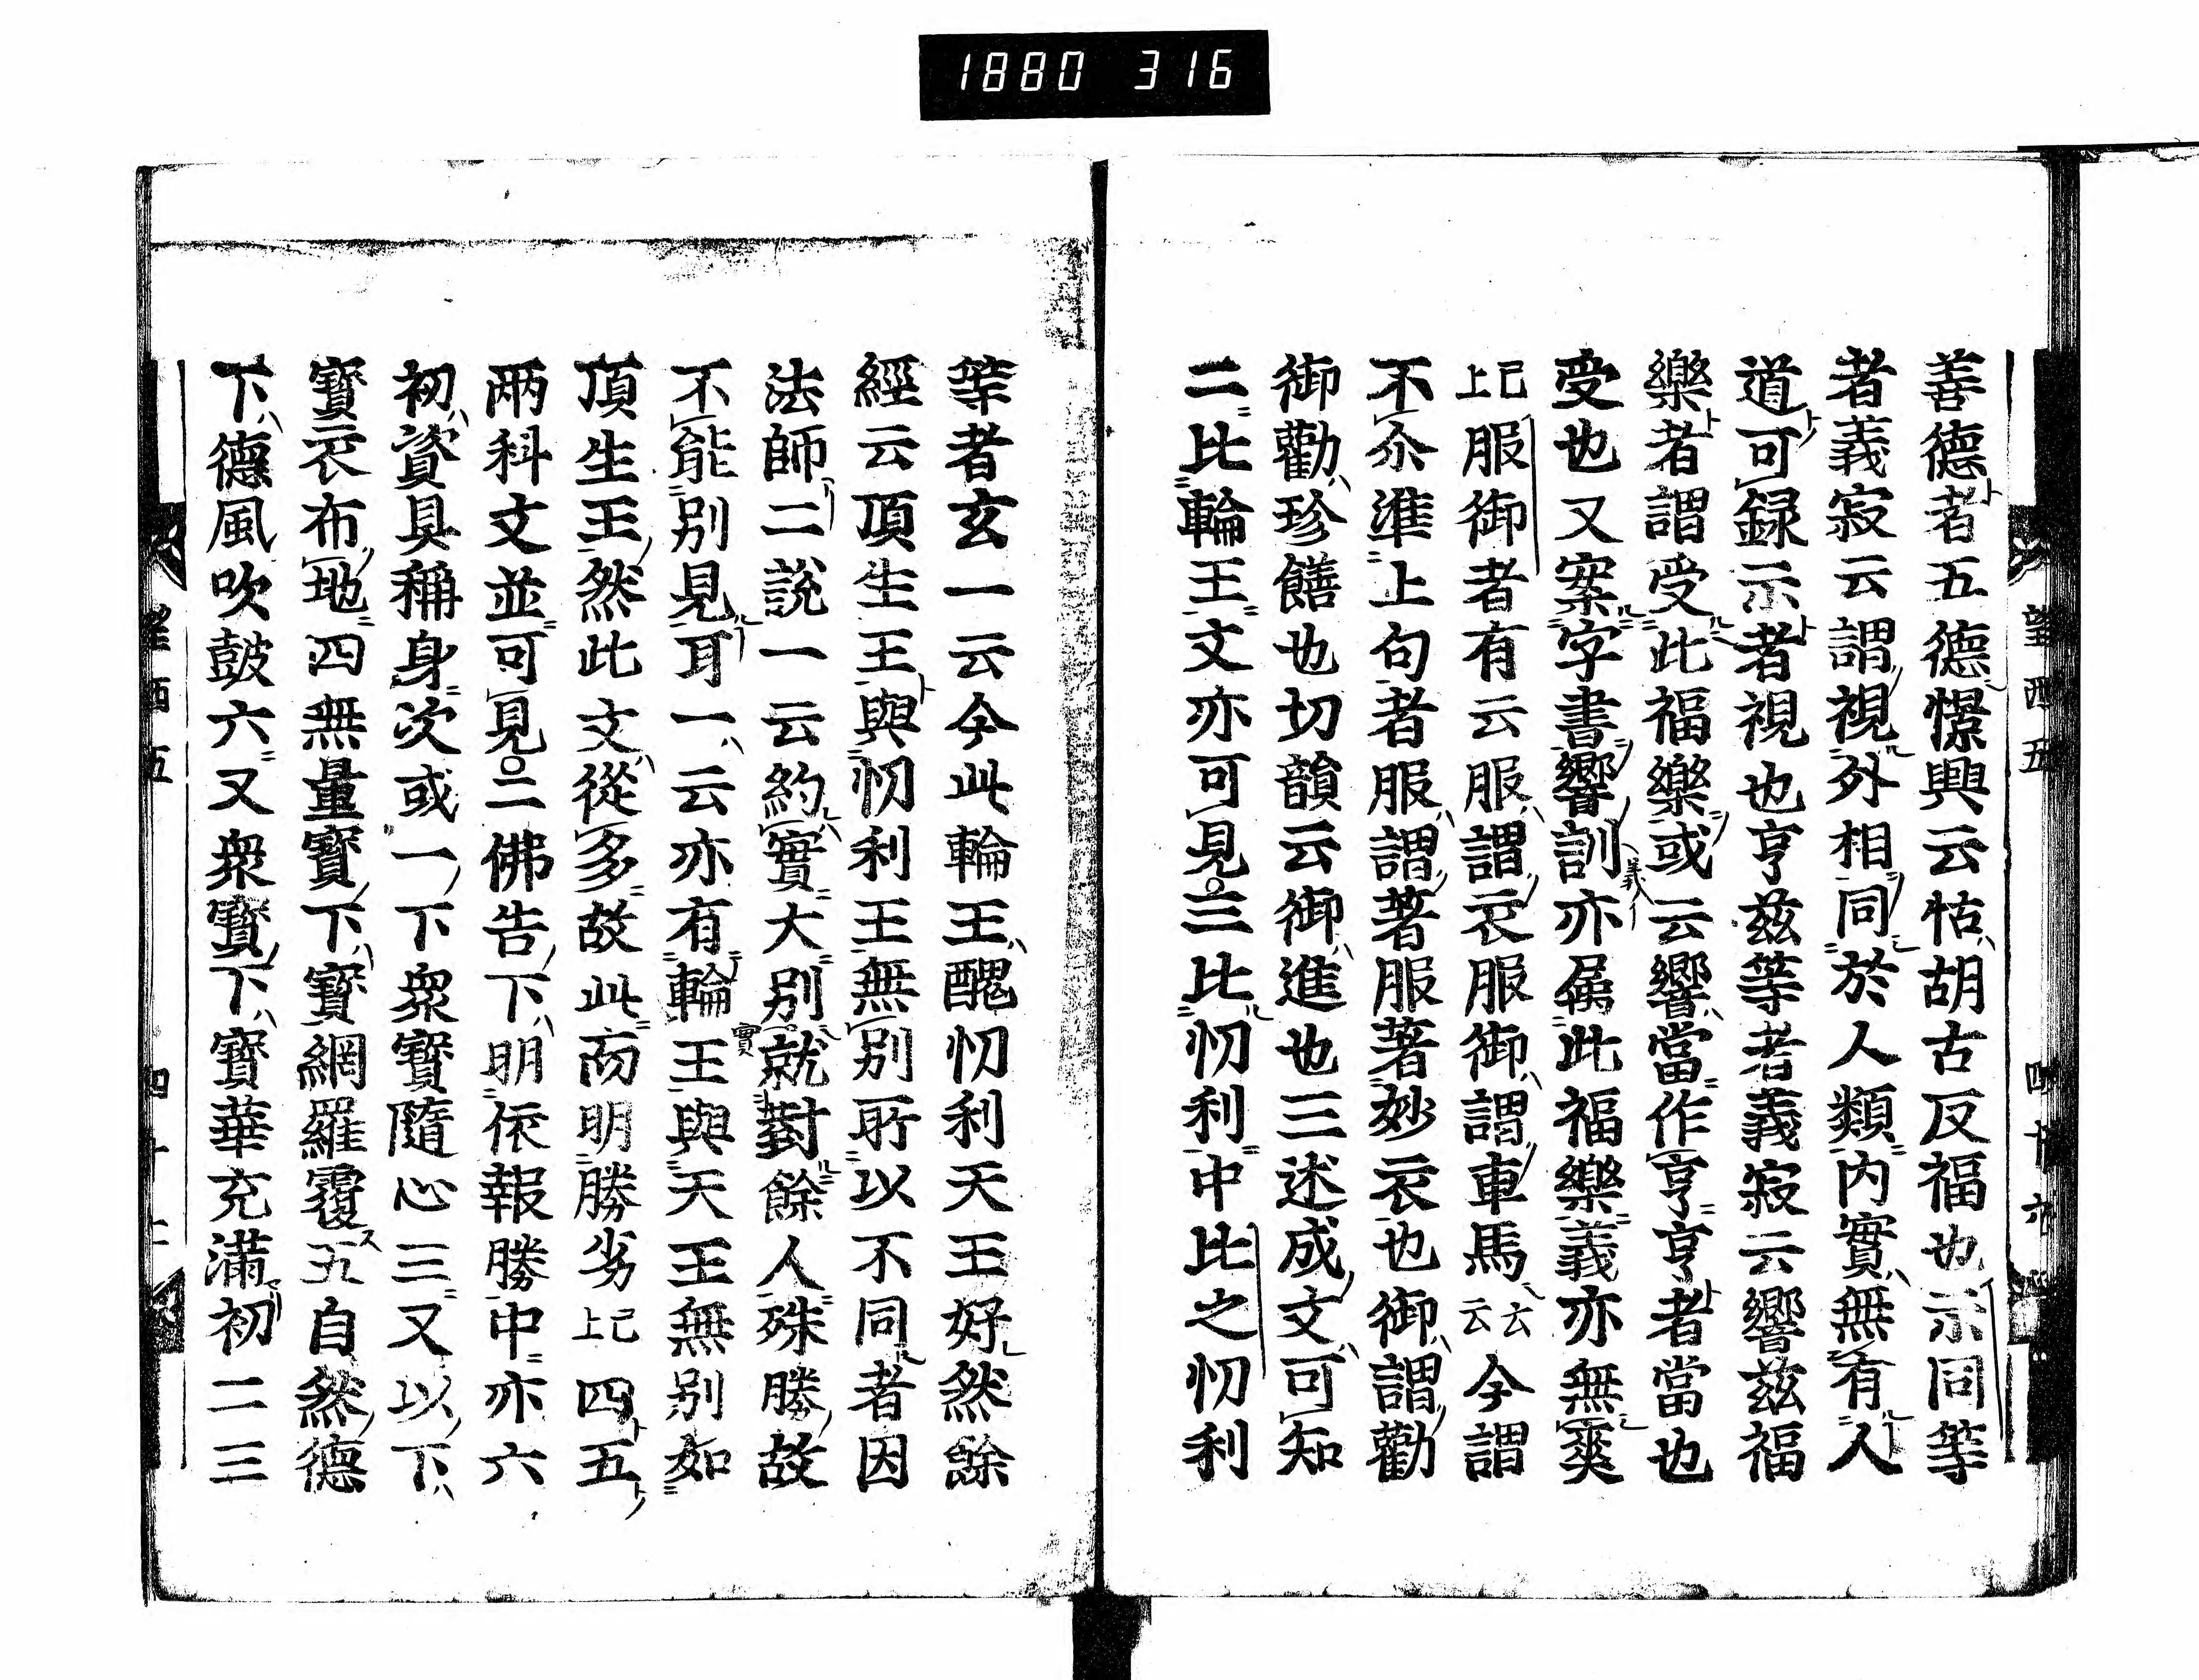 1880 316
善德者五德憬興云怙胡古反福也示同等
者義寂云謂視外相同於人類内實無有人
道可録示者視也亨兹等者義寂云響兹福
樂者謂受此福樂或云響當作亨亨者當也
受也又案字書響訓亦属此福樂義亦無爽
已上服御者有云服謂衣服御謂車馬云云今謂
不尒準上句者服謂著服著妙衣也御謂勸
御勸珍饍也切韻云御進也三述成文可知
二比輪王文亦可見三比忉利中比之忉利
等者玄一云今此輪王醜忉利天王好然餘
經云頂生王與忉利王無別所以不同者因
法師二説一云約實大別就對餘人殊勝故
不能別見耳一云亦有輪王與天王無別如
頂生王然此文從多故此而明勝劣已上四五
兩科文並可見二佛告下明依報勝中亦六
初資具稱身次或一下衆寳隨心三又以下
寳衣布地四無量寳下寳網羅覆五自然德
下德風吹鼓六又衆寳下寳華充滿初二三
望西五 四十六